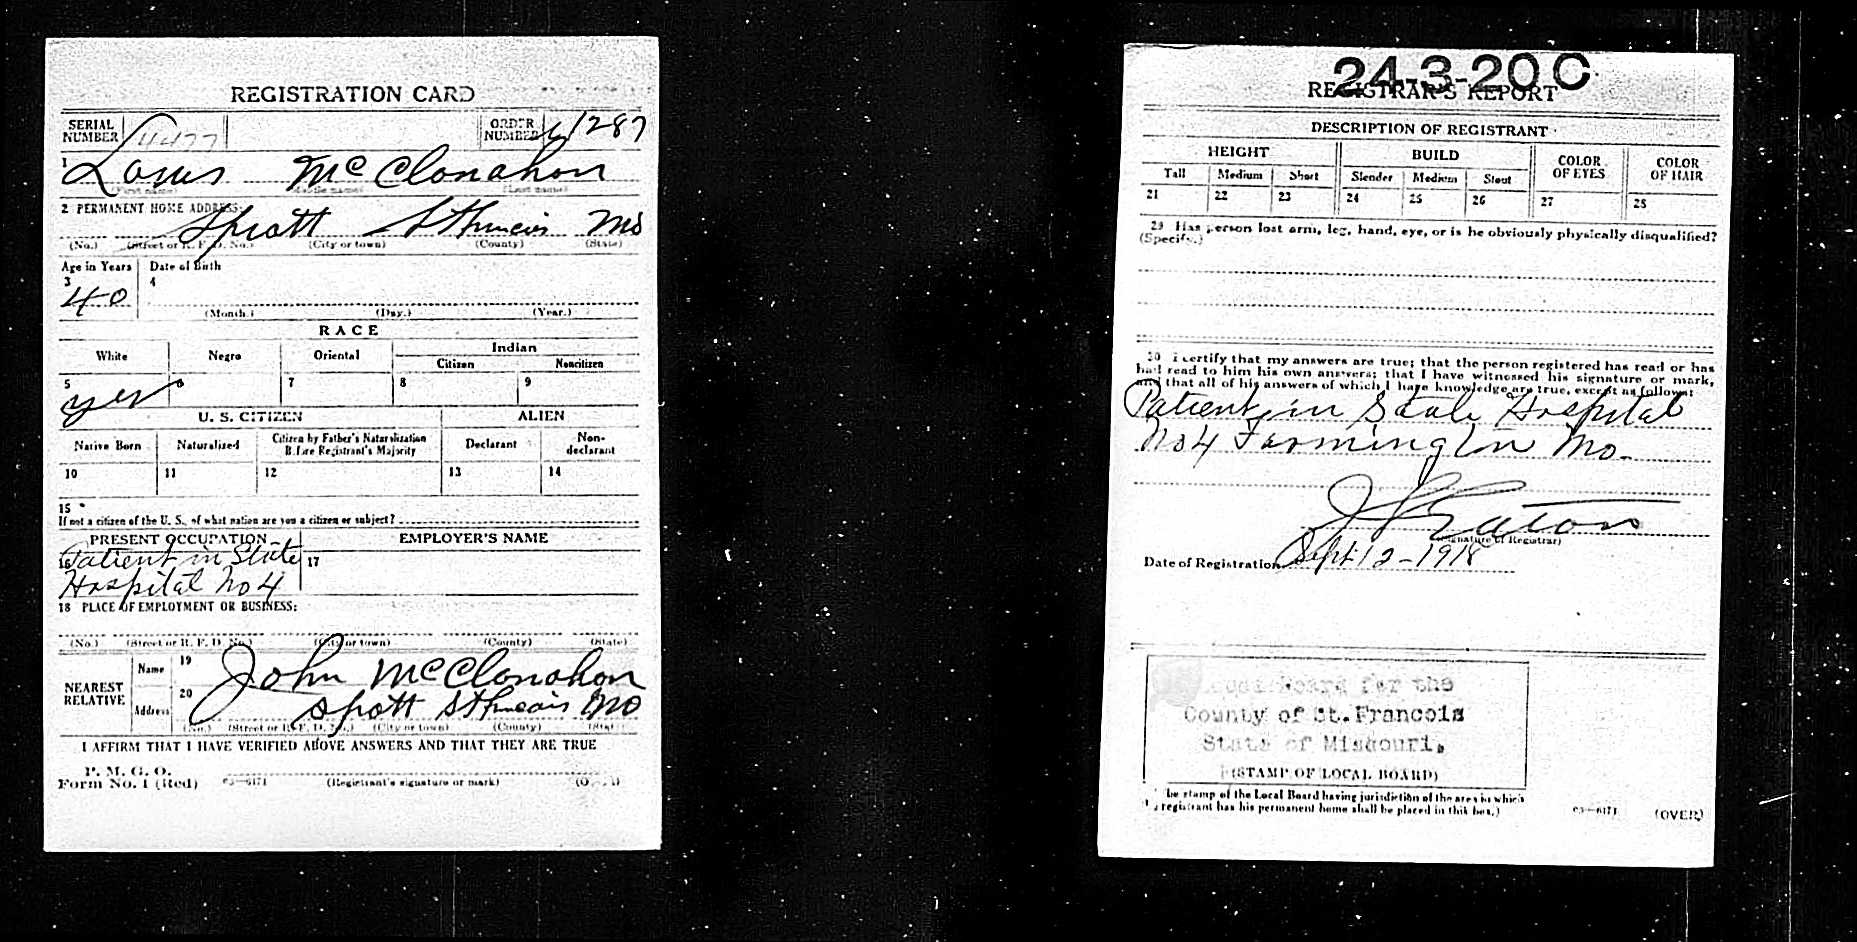 REGISTRATION CARD
SERIAL NUMBER 4477
ORDER NUMBER 1287
1 Louis McClonahon
(First name) (Middle name) (Last name)
2 PERMANENT HOME ADDRESS:
Sprott St Francis Mo
(No.) (Street or R. F. D. No.) (City or town) (County) (State)
Age in Years Date of Birth
3 40 4
(Month.) (Day.) (Year.)
RACE
White Negro Oriental Indian
Citizen Noncitizen
5 yes 6 7 8 9
U. S. CITIZEN ALIEN
Native Born Naturalized Citizen by Father's Naturalization Before Registrant's Majority Declarant Non-declarant
10 11 12 13 14
15
If not a citizen of the U. S., of what nation are you a citizen or subject?
PRESENT OCCUPATION EMPLOYER'S NAME
16 Patient in State 17
Hospital No 4
18 PLACE OF EMPLOYMENT OR BUSINESS:
(No.) (Street or R. F. D. No.) (City or town) (County) (State)
NEAREST RELATIVE
Name 19 John McClonahon
Address 20 Sprott St Francois Mo
(No.) (Street or R. F. D. No.) (City or town) (County) (State)
I AFFIRM THAT I HAVE VERIFIED ABOVE ANSWERS AND THAT THEY ARE TRUE
P. M. G. O.
Form No. 1 (Red) 03—6171 (Registrant's signature or mark)
24-3-20 C
REGISTRAR'S REPORT
DESCRIPTION OF REGISTRANT
HEIGHT BUILD COLOR OF EYES COLOR OF HAIR
Tall Medium Short Slender Medium Stout
21 22 23 24 25 26 27 28
29 Has person lost arm, leg, hand, eye, or is he obviously physically disqualified?
(Specify.)
30 I certify that my answers are true; that the person registered has read or has
had read to him his own answers; that I have witnessed his signature or mark,
and that all of his answers of which I have knowledge are true, except as follows:
Patient in State Hospital
No 4 Farmington Mo.
(Signature of Registrar)
Date of Registration Sept 12-1918
Local Board for the
County of St. Francois
State of Missouri.
(STAMP OF LOCAL BOARD)
The stamp of the Local Board having jurisdiction of the area in which
registrant has his permanent home shall be placed in this box.)
03—6171 (OVER)